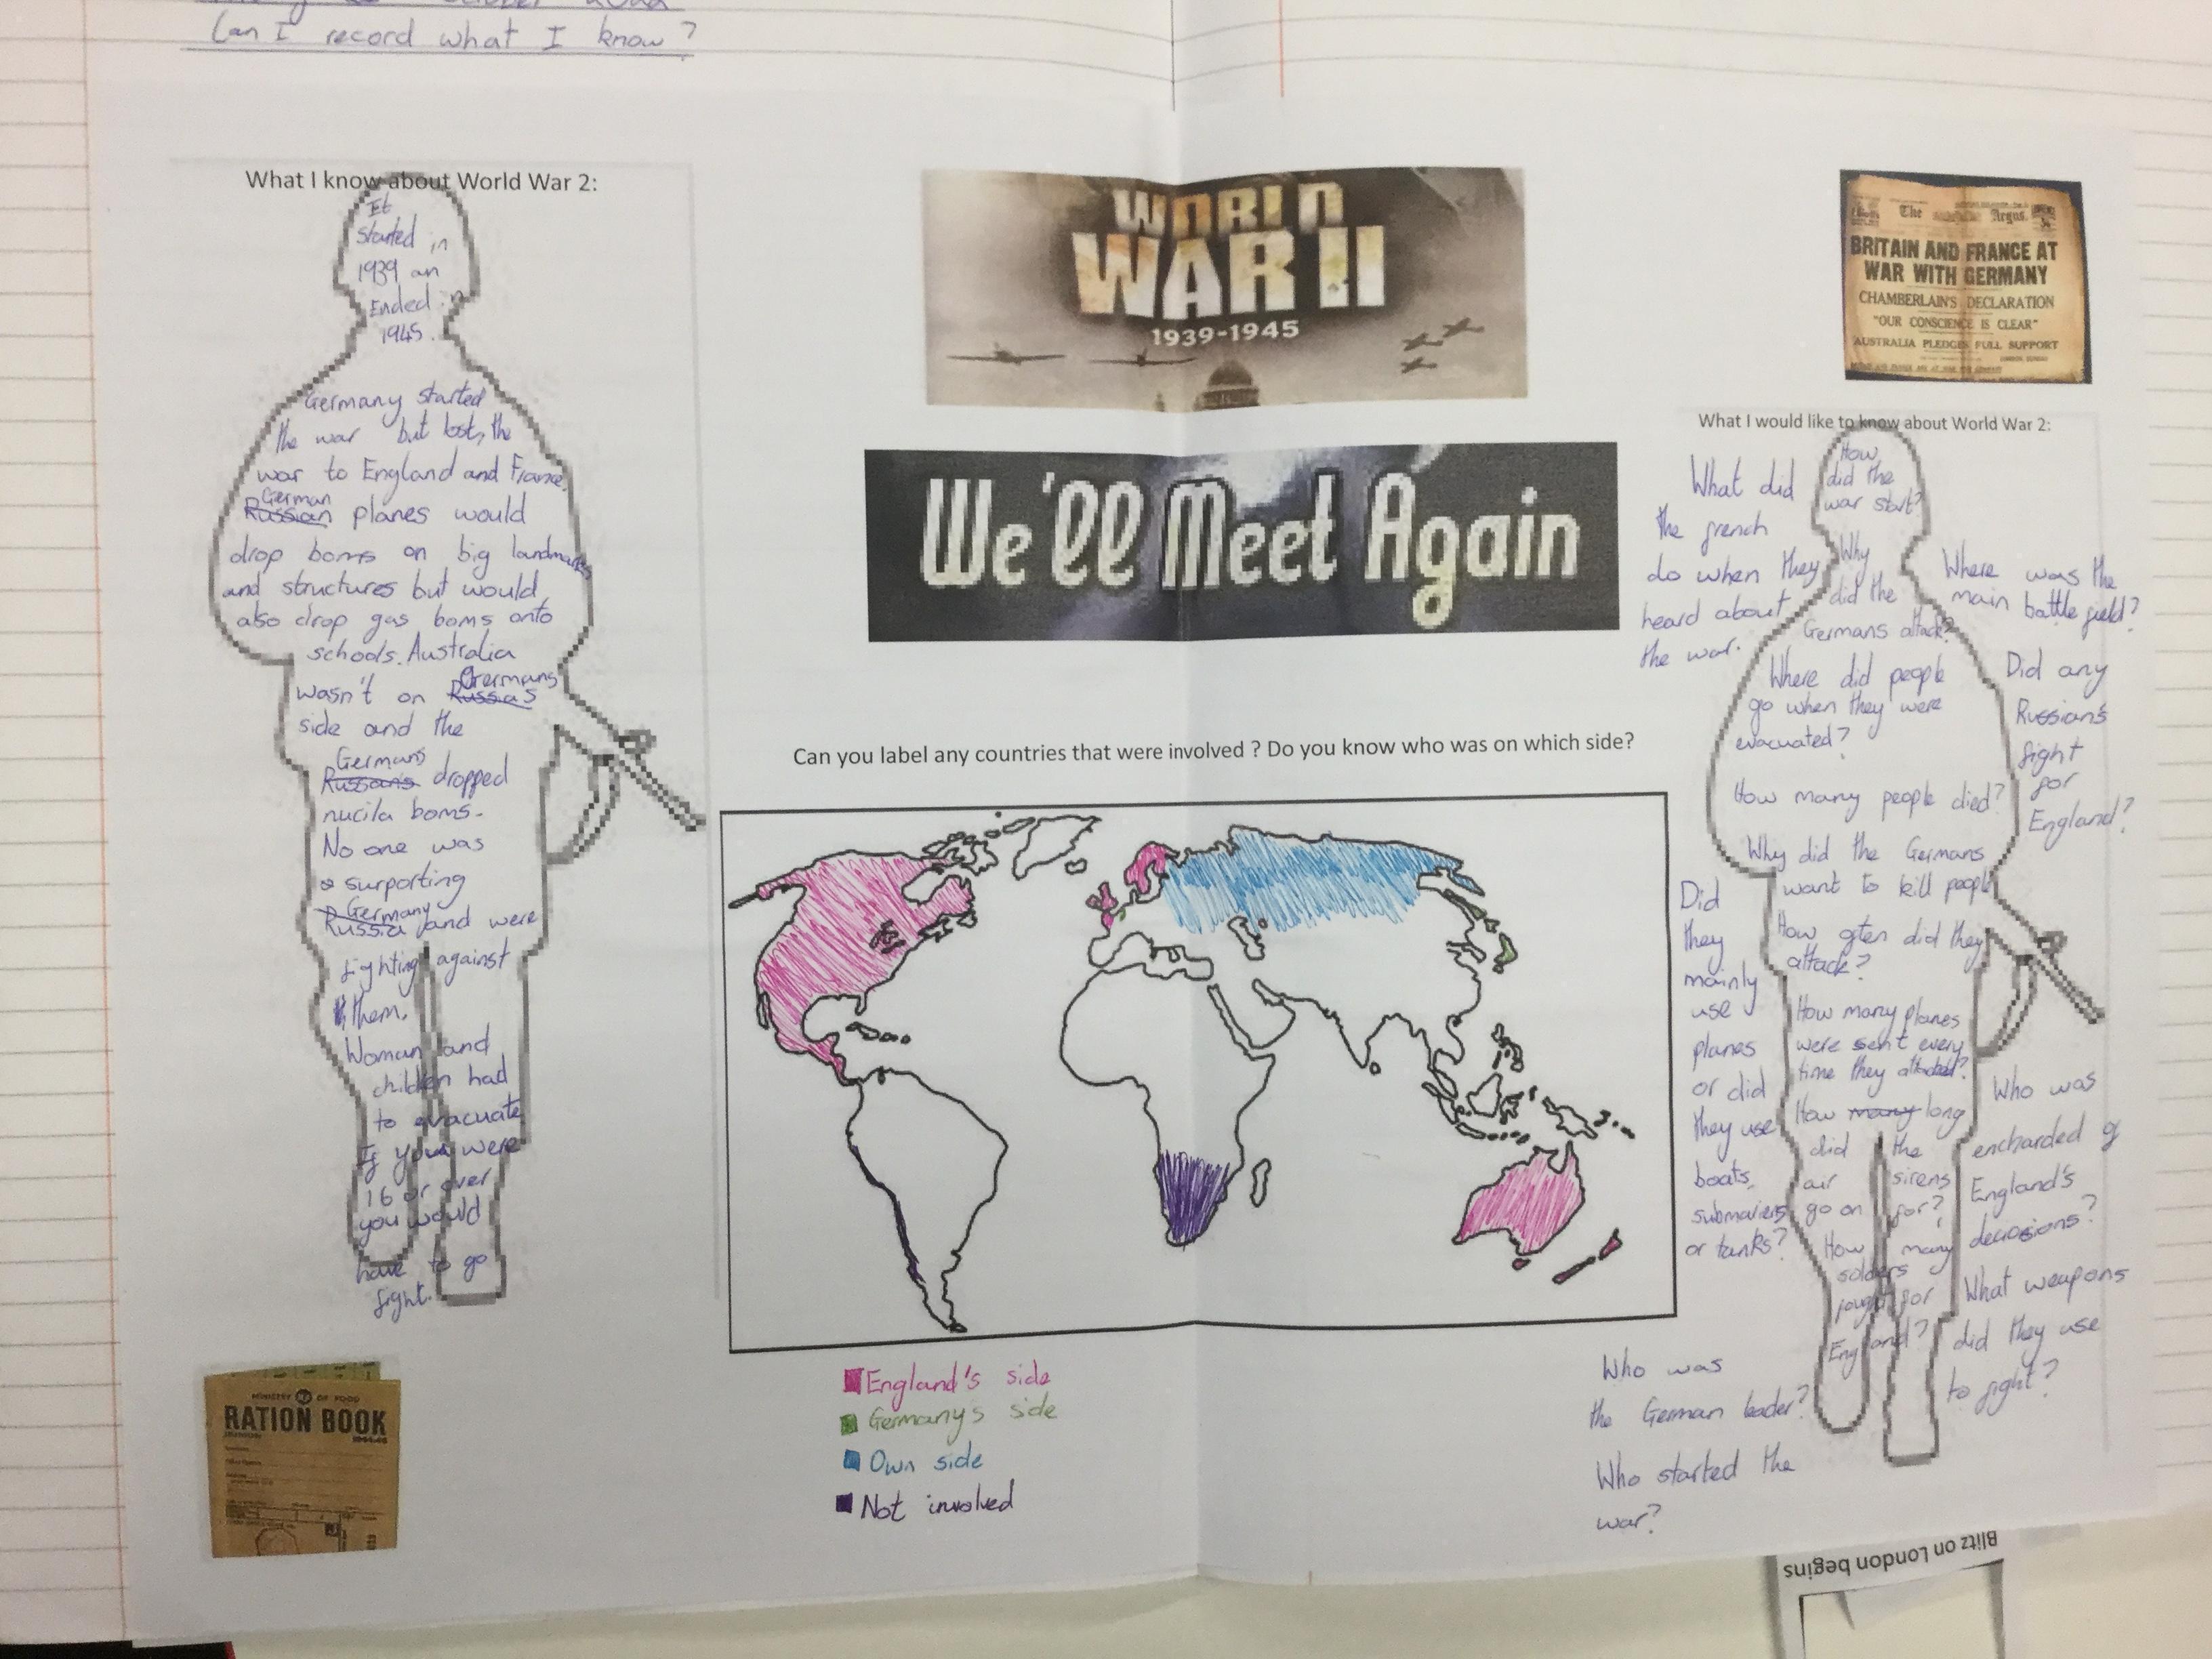 Can I record what I know?
What I know about World War 2:
It
started in
1939 an
Ended in
1945.
Germany started
the war but lost, the
war to England and France.
German
Russian planes would
drop boms on big landmarks
and structures but would
also drop gas boms onto
schools. Australia
Germans
wasn't on Russias
side and the
Germans
Russans dropped
nucila boms.
No one was
surporting
Germany
Russia and were
fighting against
them.
Woman and
children had
to evacuate
If you were
16 or over
you would
have to go
fight.
MINISTRY OF FOOD
RATION BOOK
WORLD
WAR II
1939-1945
We'll Meet Again
Can you label any countries that were involved ? Do you know who was on which side?
England's side
Germany's side
Own side
Not involved
The Argus.
BRITAIN AND FRANCE AT
WAR WITH GERMANY
CHAMBERLAIN'S DECLARATION
"OUR CONSCIENCE IS CLEAR"
AUSTRALIA PLEDGES FULL SUPPORT
What I would like to know about World War 2:
What did
the french
do when they
heard about
the war.
How
did the
war start?
Why
did the
Germans attack?
Where was the
main battle field?
Where did people
go when they were
evacuated?
Did any
Russian's
fight
for
England?
How many people died?
Why did the Germans
want to kill people
How often did they
attack?
Did
they
mainly
use
planes
or did
they use
boats,
submariens
or tanks?
How many planes
were sent every
time they attacked?
How many long
did the
air sirens
go on for?
How many
soldiers
fought for
England?
Who was
encharded of
England's
decosions?
What weapons
did they use
to fight?
Who was
the German leader?
Who started the
war?
Blitz on London begins